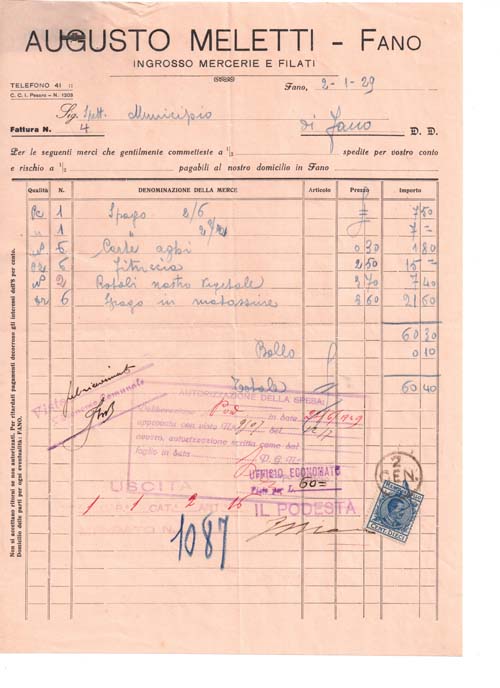 AUGUSTO MELETTI - FANO
INGROSSO MERCERIE E FILATI
TELEFONO 41
C. C. I. Pesaro - N. 1203
Fano, 2-1-29
Sig. Spett. Municipio
Fattura N. 4 di Fano D. D.
Per le seguenti merci che gentilmente commetteste a 1/2 spedite per vostro conto
e rischio a 1/2 pagabili al nostro domicilio in Fano
Qualità N. DENOMINAZIONE DELLA MERCE Articolo Prezzo Importo
Pc 1 Spago 2/6 7 50
" 1 " 7 =
6 Carte aghi 0 30 1 80
6 Fituccia 2 50 15 =
2 Rotoli nastro 3 70 7 40
6 Spago in matassine 3 60 21 60
60 30
Bollo 0 10
Totale 60 40
Non si accettano ritorsi se non autorizzati. Per ritardati pagamenti decorrono gli interessi dell'8 per cento.
Domicilio delle parti per ogni eventualità: FANO.
AUTORIZZAZIONE DELLA SPESA
Deliberazione Pod in data
approvata con visto N. del
ovvero, autorizzazione scritta come dal
foglio in data
UFFICIO ECONOMATO
Visto per L. 60=
USCITA
CAT. ART.
1 1 2 15
IL PODESTÀ
1087
2
GEN.
CENT. DIECI